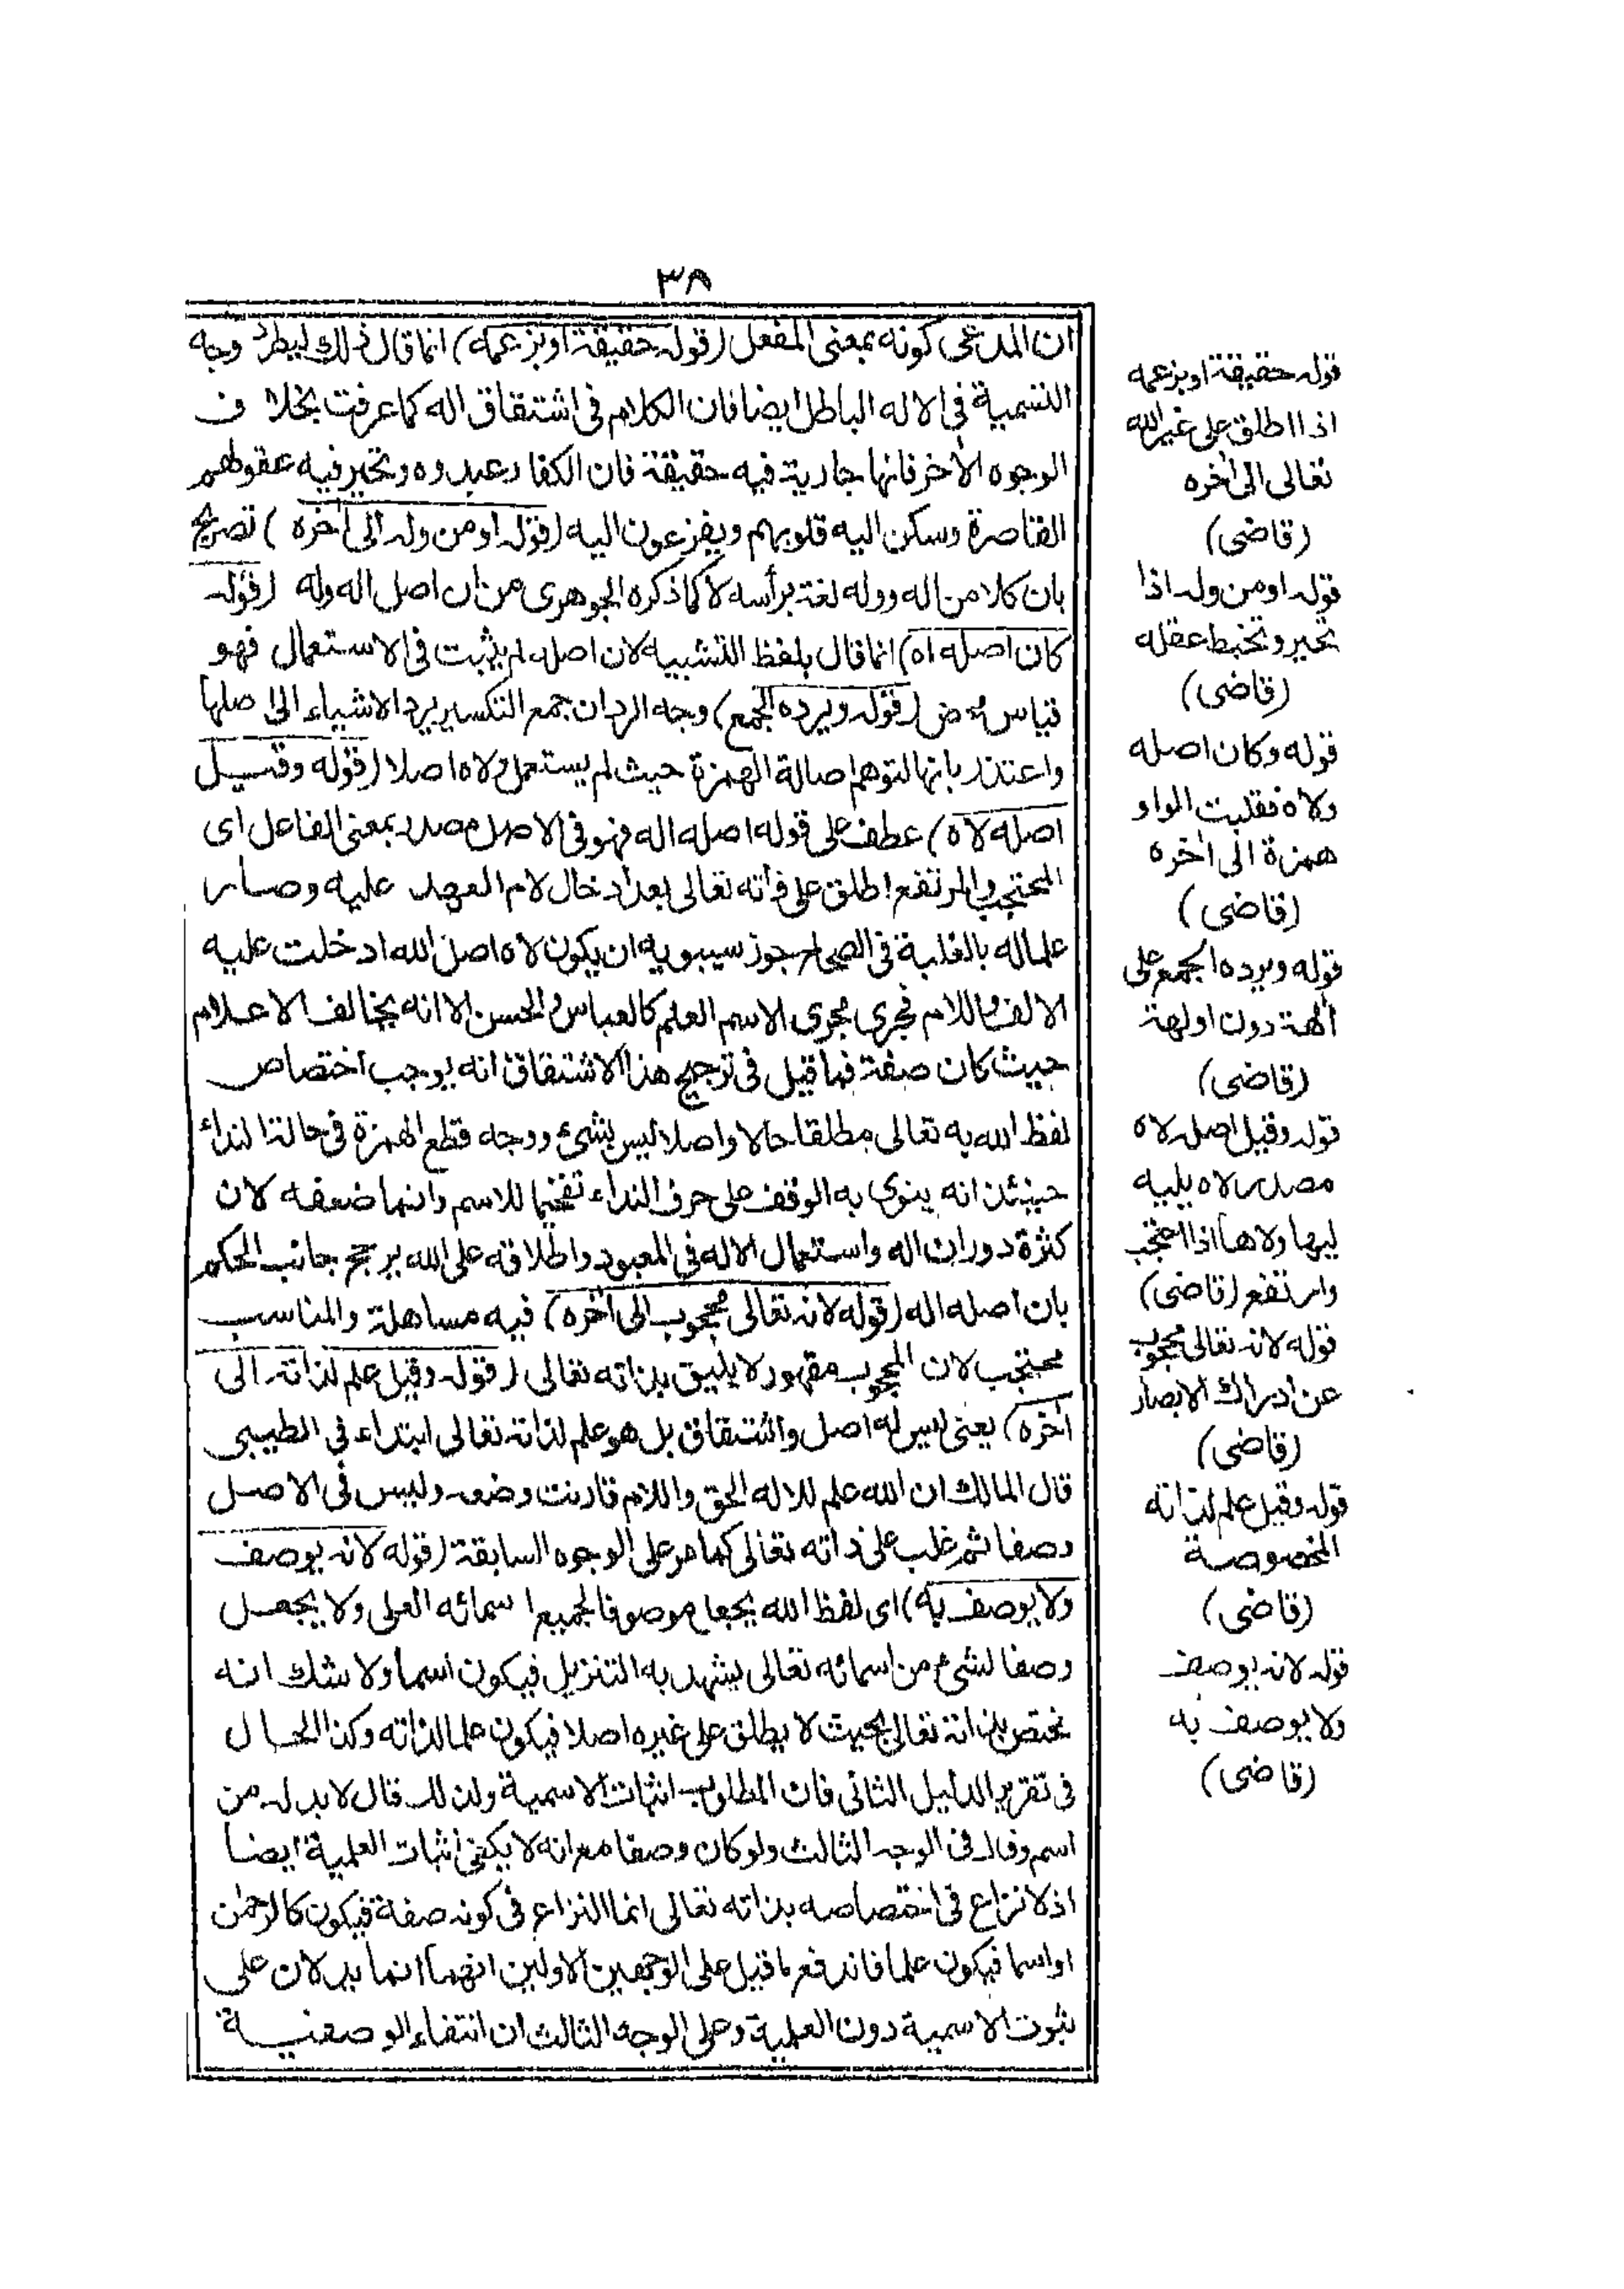 ٣٨
ان المدعى كونه بمعنى المفعل (قوله حقيقة او بزعمه) انما قال ذلك ليطرد وجه
التسمية فى الاله الباطل ايضا فان الكلام فى اشتقاق اله كما عرفت بخلاف
الوجوه الأخر فانها جارية فيه حقيقة فان الكفار عبدوه وتحير فيه عقولهم
القاصرة وسكن اليه قلوبهم ويفزعون اليه (قوله او من وله الى اخره) تصريح
بان كلا من اله ووله لغة برأسه لا كما ذكره الجوهرى من ان اصل اله وله (قوله
كان اصله اه) انما قال بلفظ التشبيه لان اصله لم يثبت فى الاستعمال فهو
قياس محض (قوله ويرده الجمع) وجه الرد ان جمع التكسير يرد الاشياء الى اصلها
واعتذر بانها لتوهم اصالة الهمزة حيث لم يستعمل ولاه اصلا (قوله وقيل
اصله لاه) عطف على قوله اصله اله فهو فى الاصل مصدر بمعنى الفاعل اى
المحتجب والمرتفع اطلق على ذاته تعالى بعد ادخال لام العهد عليه وصار
علما له بالغلبة فى الصحاح جوز سيبويه ان يكون لاه اصل الله ادخلت عليه
الالف واللام فجرى مجرى الاسم العلم كالعباس والحسن الا انه يخالف الاعلام
حيث كان صفة فما قيل فى ترجيح هذا الاشتقاق انه يوجب اختصاص
لفظ الله به تعالى مطلقا حالا واصلا ليس بشئ ووجه قطع الهمزة فى حالة النداء
حينئذ انه ينوى به الوقف على حرف النداء تفخيما للاسم وانما ضعفه لان
كثرة دوران اله واستعمال الاله فى المعبود واطلاقه على الله يرجح جانب الحكم
بان اصله اله (قوله لانه تعالى محجوب الى اخره) فيه مساهلة والمناسب
محتجب لان المحجوب مقهور لا يليق بذاته تعالى (قوله وقيل علم لذاته الى
اخره) يعنى ليس له اصل واشتقاق بل هو علم لذاته تعالى ابتداء فى الطيبى
قال المالك ان الله علم للاله الحق واللام قارنت وضعه وليس فى الاصل
وصفا ثم غلب على ذاته تعالى كما مر على الوجوه السابقة (قوله لانه يوصف
ولا يوصف به) اى لفظ الله يجعل موصوفا لجميع اسمائه العلى ولا يجعل
وصفا لشئ من اسمائه تعالى يشهد به التنزيل فيكون اسما ولا شك انه
مختص بذاته تعالى بحيث لا يطلق على غيره اصلا فيكون علما لذاته وكذا الحال
فى تقرير الدليل الثانى فان المطلوب اثبات الاسمية ولذلك قال لا بد له من
اسم وقال فى الوجه الثالث ولو كان وصفا مع انه لا يكفى اثبات العلمية ايضا
اذ لا نزاع فى اختصاصه بذاته تعالى انما النزاع فى كونه صفة فيكون كالرحمٰن
او اسما فيكون علما فاندفع ما قيل على الوجهين الاولين انهما انما يدلان على
ثبوت الاسمية دون العلمية وعلى الوجه الثالث ان انتفاء الوصفية
قوله حقيقة او بزعمه
اذا اطلق على غير الله
تعالى الى اخره
(قاضى)
قوله او من وله اذا
تحير وتخبط عقله
(قاضى)
قوله وكان اصله
ولاه فقلبت الواو
همزة الى اخره
(قاضى)
قوله ويرده الجمع على
ألهة دون اولهة
(قاضى)
قوله وقيل اصله لاه
مصدر لاه يليه
ليها ولاها اذا احتجب
وارتفع (قاضى)
قوله لانه تعالى محجوب
عن ادراك الابصار
(قاضى)
قوله وقيل علم لذاته
المخصوصة
(قاضى)
قوله لانه يوصف
ولا يوصف به
(قاضى)